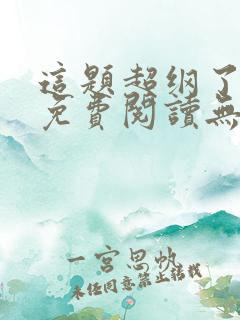 這題超纲了
免費閱讀無
一宮思帆
未经同意禁止转载